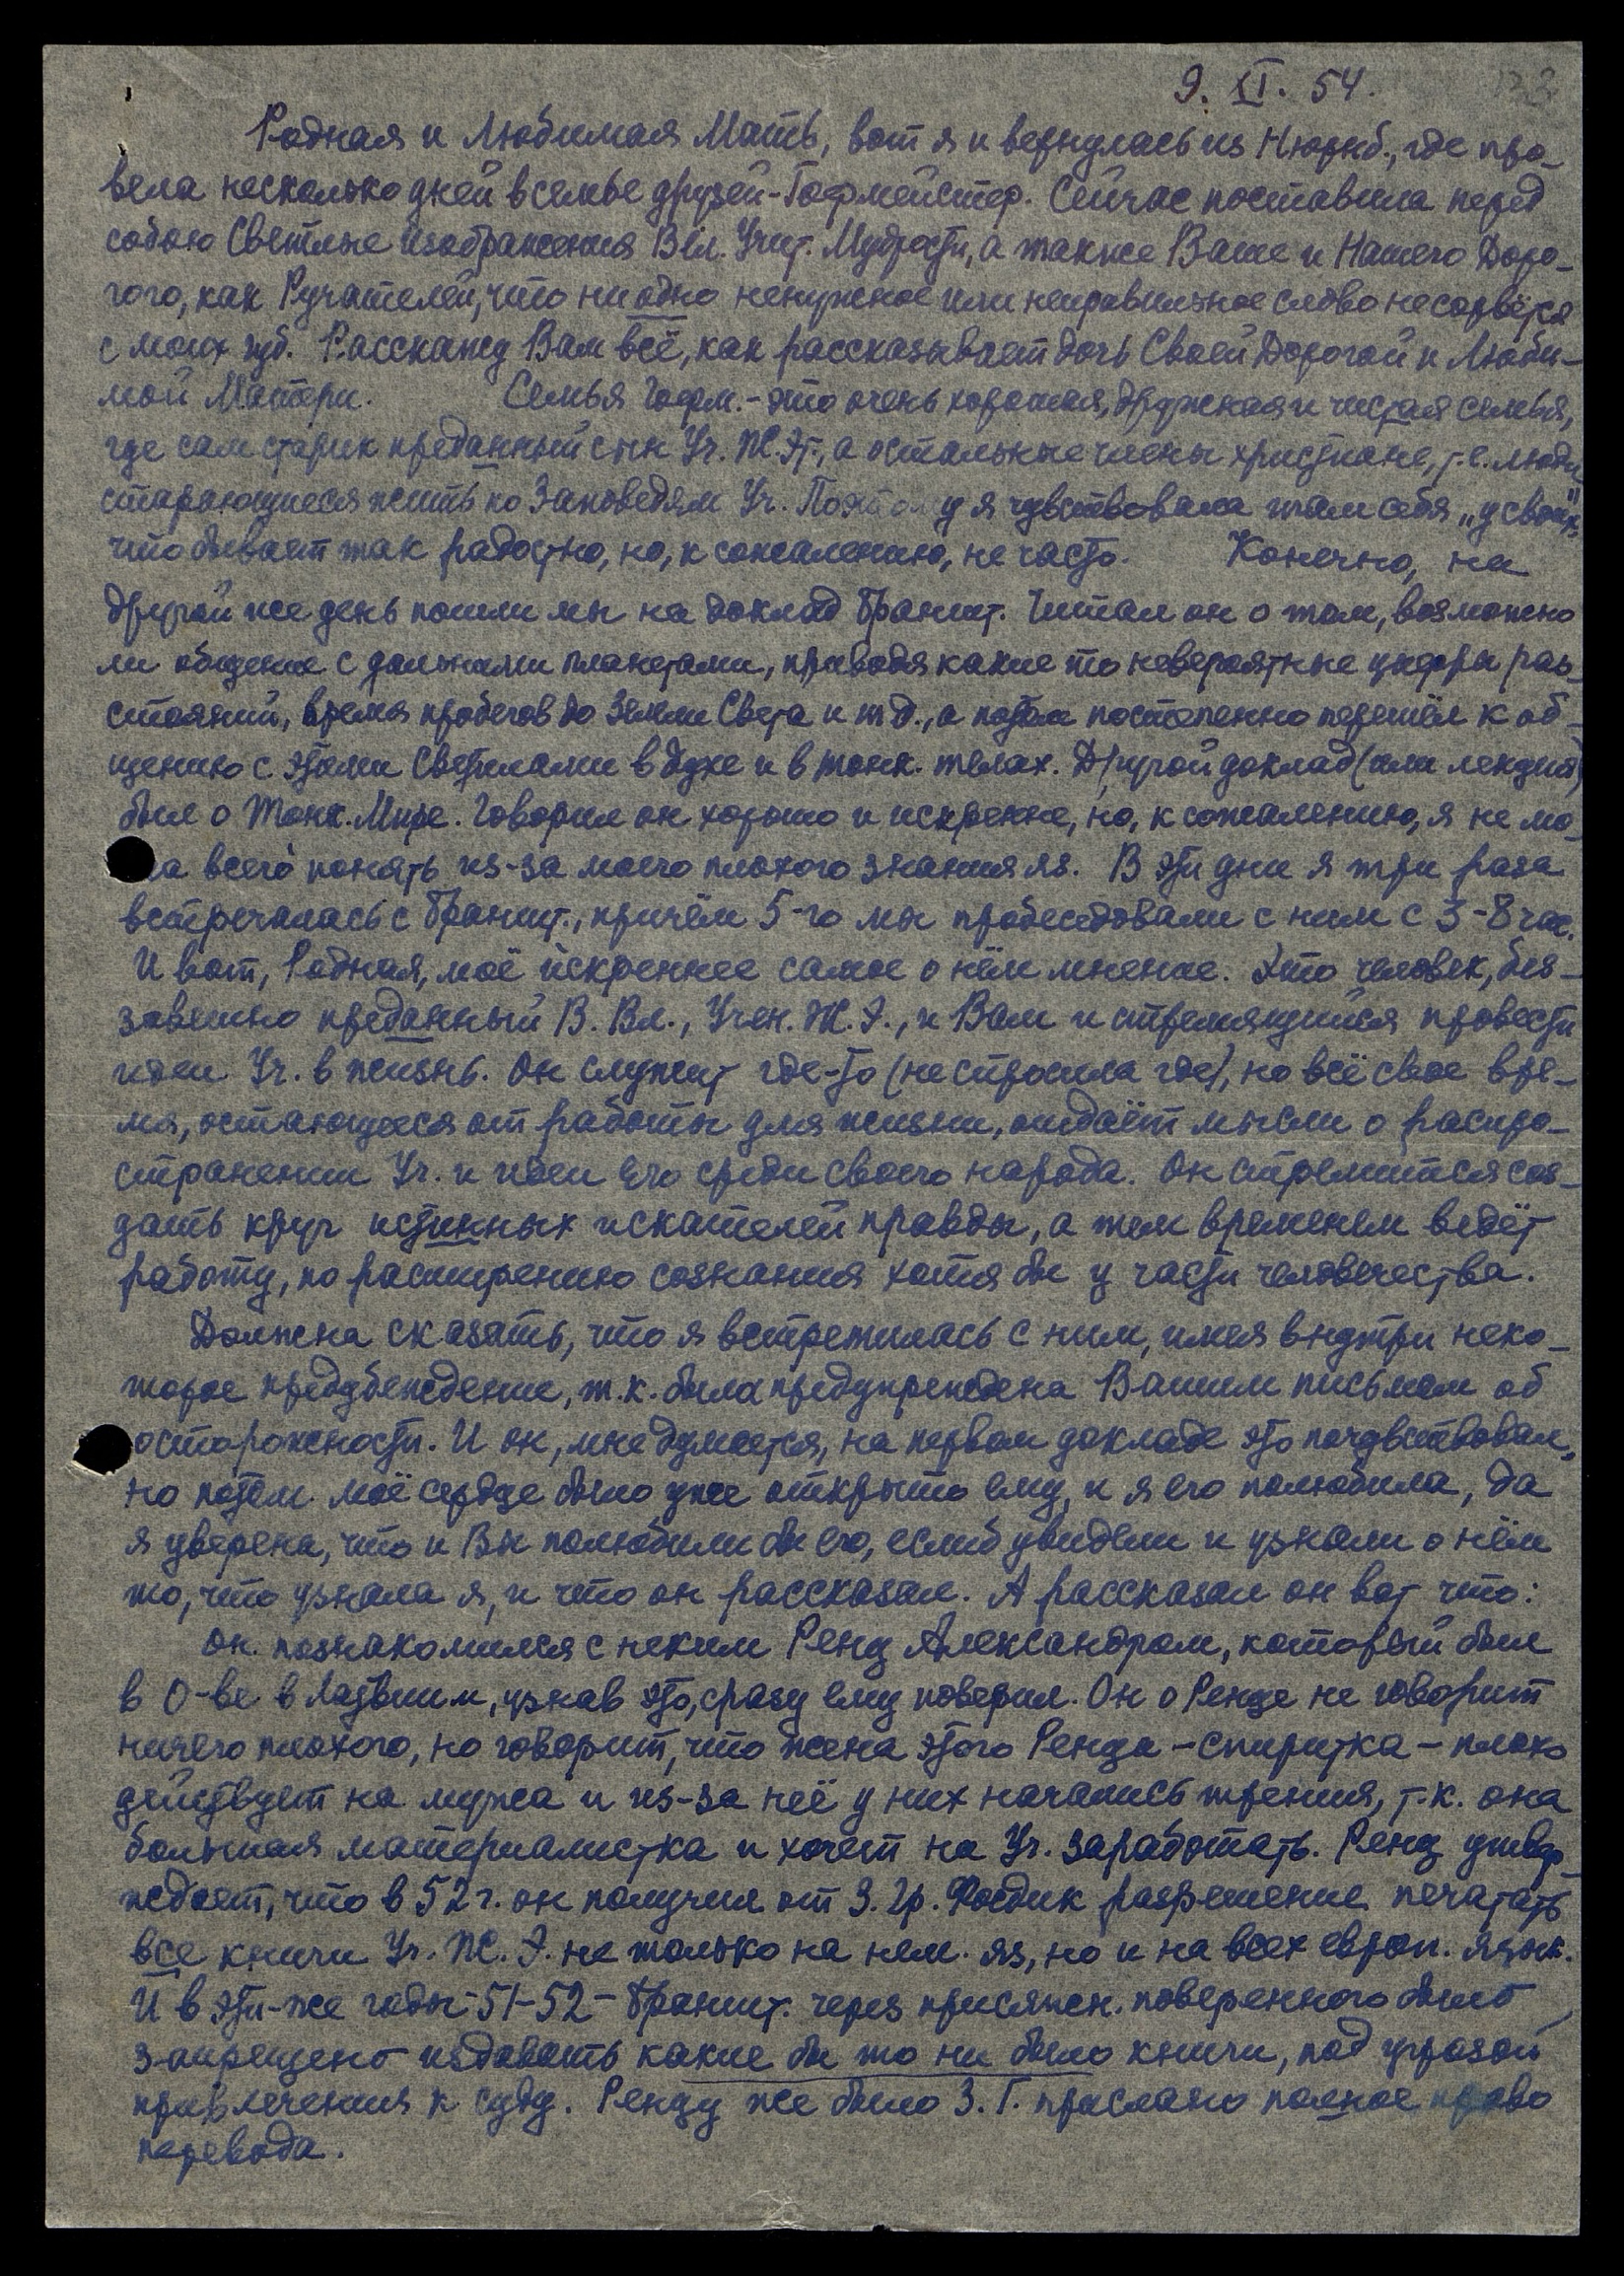 9. XI. 54.
Родная и Любимая Мать, вот я и вернулась из Нюрнб., где про-
вела несколько дней в семье друзей-Гофмейстер. Сейчас поставила перед
собою Светлые Изображения Вел. Учит. Мудрости, а также Ваше и Нашего Доро-
гого, как Ручателей, что ни одно ненужное или неправильное слово не сорвётся
с моих губ. Расскажу Вам всё, как рассказывает дочь Своей Дорогой и Люби-
мой Матери. Семья Гофм. - это очень хорошая, дружная и чистая семья,
где сам старик преданный сын Уч. Ж. Эт., а остальные члены христиане, т.е. люди
старающиеся жить по Заповедям Уч. Поэтому я чувствовала там себя „у своих",
что бывает так радостно, но, к сожалению, не часто. Конечно, на
другой же день пошли мы на доклад Бранит. Читал он о том, возможно
ли общение с дальними планетами, приводя какие то невероятные цифры рас-
стояний, время пробегов до Земли Света и т.д., а потом постепенно перешёл к об-
щению с этими Светилами в духе и в тонк. телах. Другой доклад (или лекция)
был о Тонк. Мире. Говорил он хорошо и искренне, но, к сожалению, я не мо-
ла всего понять из-за моего плохого знания яз. В эти дни я три раза
встречалась с Бранит., причём 5-го мы пробеседовали с ним с 3-8 час.
И вот, Родная, моё искреннее самое о нём мнение. Это человек, без-
заветно преданный В. Вл., Учен. Ж. Э., и Вам и стремящийся провести
идеи Уч. в жизнь. Он служит где-то (не спросила где), но всё свое вре-
мя, остающееся от работы для жизни, отдаёт мысли о распро-
странении Уч. и идеи Его среди своего народа. Он стремится соз-
дать круг истинных искателей правды, а тем временем ведёт
работу, по расширению сознания хотя бы у части человечества.
Должна сказать, что я встретилась с ним, имея внутри неко-
торое предубеждение, т.к. была предупреждена Вашим письмом об
осторожности. И он, мне думается, на первом докладе это почувствовал,
но потом моё сердце было уже открыто ему, и я его полюбила, да
я уверена, что и Вы полюбили бы его, если б увидели и узнали о нём
то, что узнала я, и что он рассказал. А рассказал он вот что:
Он познакомился с неким Ренц Александром, который был
в О-ве в Латвии и, узнав это, сразу ему поверил. Он о Ренце не говорит
ничего плохого, но говорит, что жена этого Ренца - спиритка - плохо
действует на мужа и из-за неё у них начались трения, т.к. она
большая материалистка и хочет на Уч. заработать. Ренц утвер-
ждает, что в 52 г. он получил от З. Гр. Фосдик разрешение печатать
все книги Уч. Ж. Э. не только на нем. яз., но и на всех европ. язык.
И в эти-же годы-51-52- Бранит. через присяжн. поверенного было
запрещено издавать какие бы то ни было книги, под угрозой
привлечения к суду. Ренцу же было З. Г. прислано полное право
перевода.